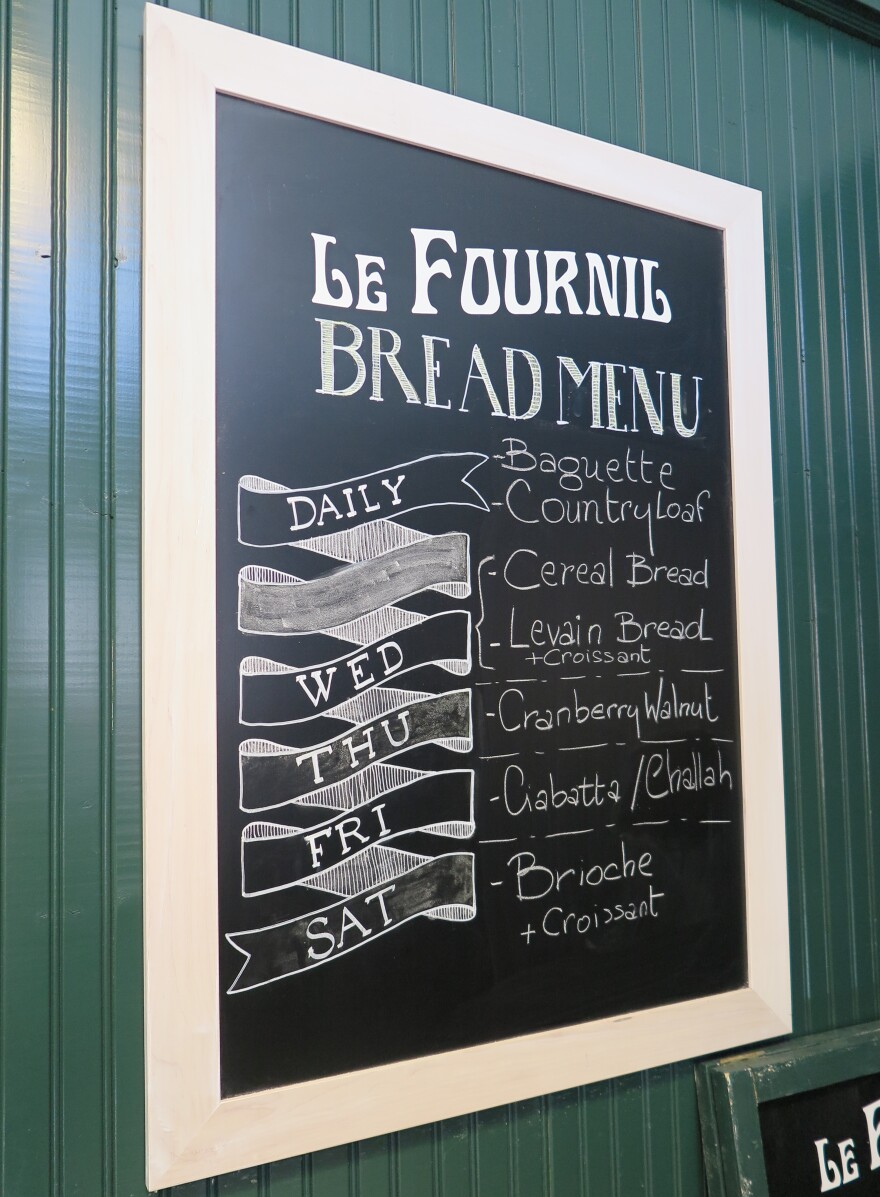 LE FOURNIL
BREAD MENU
DAILY
-Baguette
-Country Loaf
-Cereal Bread
WED
-Levain Bread
+Croissant
THU
-Cranberry Walnut
FRI
-Ciabatta / Challah
SAT
-Brioche
+Croissant
LE F